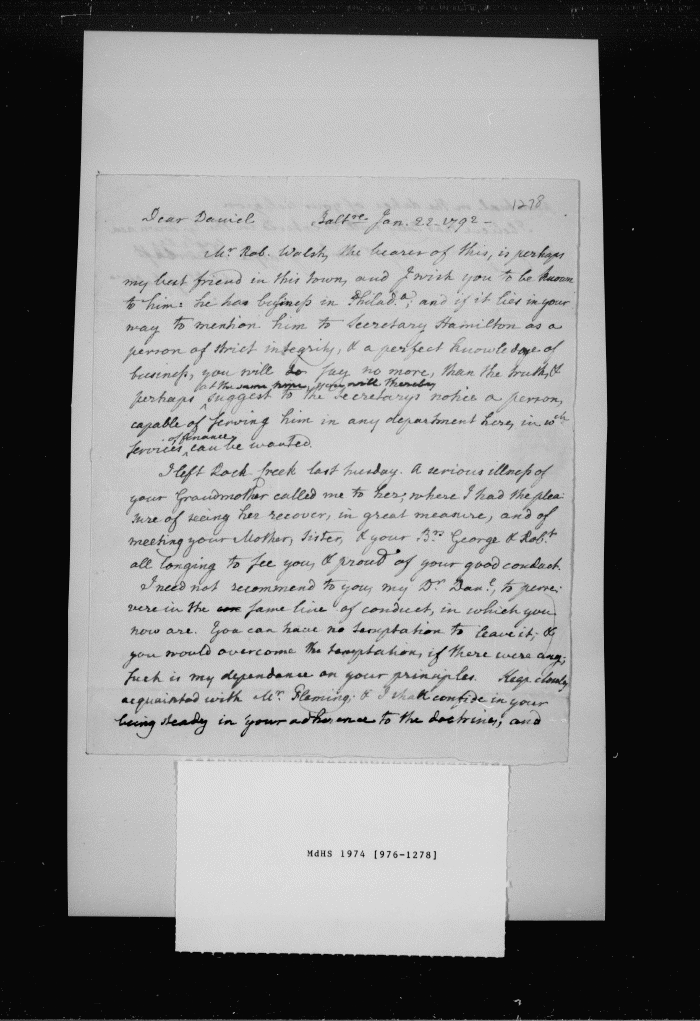 1278
Dear Daniel Baltre. Jan. 22 1792 -
Mr. Rob. Walsh, the bearer of this, is perhaps
my best friend in this town, and I wish you to be known
to him: he has business in Philada; and if it lies in your
way to mention him to Secretary Hamilton as a
person of strict integrity, & a perfect knowledge of
business, you will do say no more, than the truth, &
at the same time, you will thereby
perhaps suggest to the Secretarys notice a person,
capable of serving him in any department here, in wch
of finance
services can be wanted.
I left Rock Creek last tuesday. A serious illness of
your Grandmother called me to her; where I had the plea
sure of seeing her recover, in great measure, and of
meeting your Mother, Sister, & your Brs George & Robt
all longing to see you, & proud of your good conduct.
I need not recommend to you, my Dr Danl, to perse:
vere in the same line of conduct, in which you
now are. You can have no temptation to leave it; &
you would overcome the temptation, if there were any;
such is my dependance on your principles. Keep closely
acquainted with Mr. Fleming; & I shall confide in your
being steady in your adherence to the doctrines, and
MdHS 1974 [976-1278]